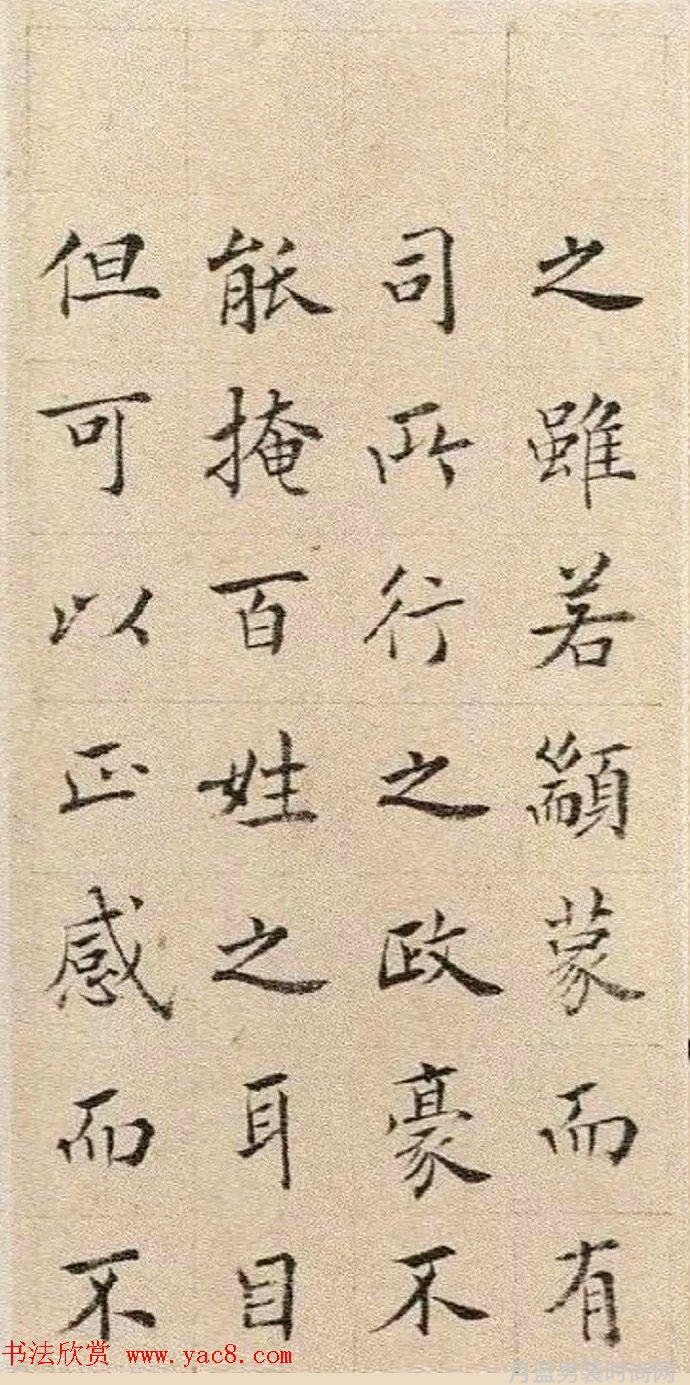 之雖若顓蒙而有
司所行之政豪不
能掩百姓之耳目
但可以正感而不
书法欣赏 www.yac8.com
月盆男装时尚网